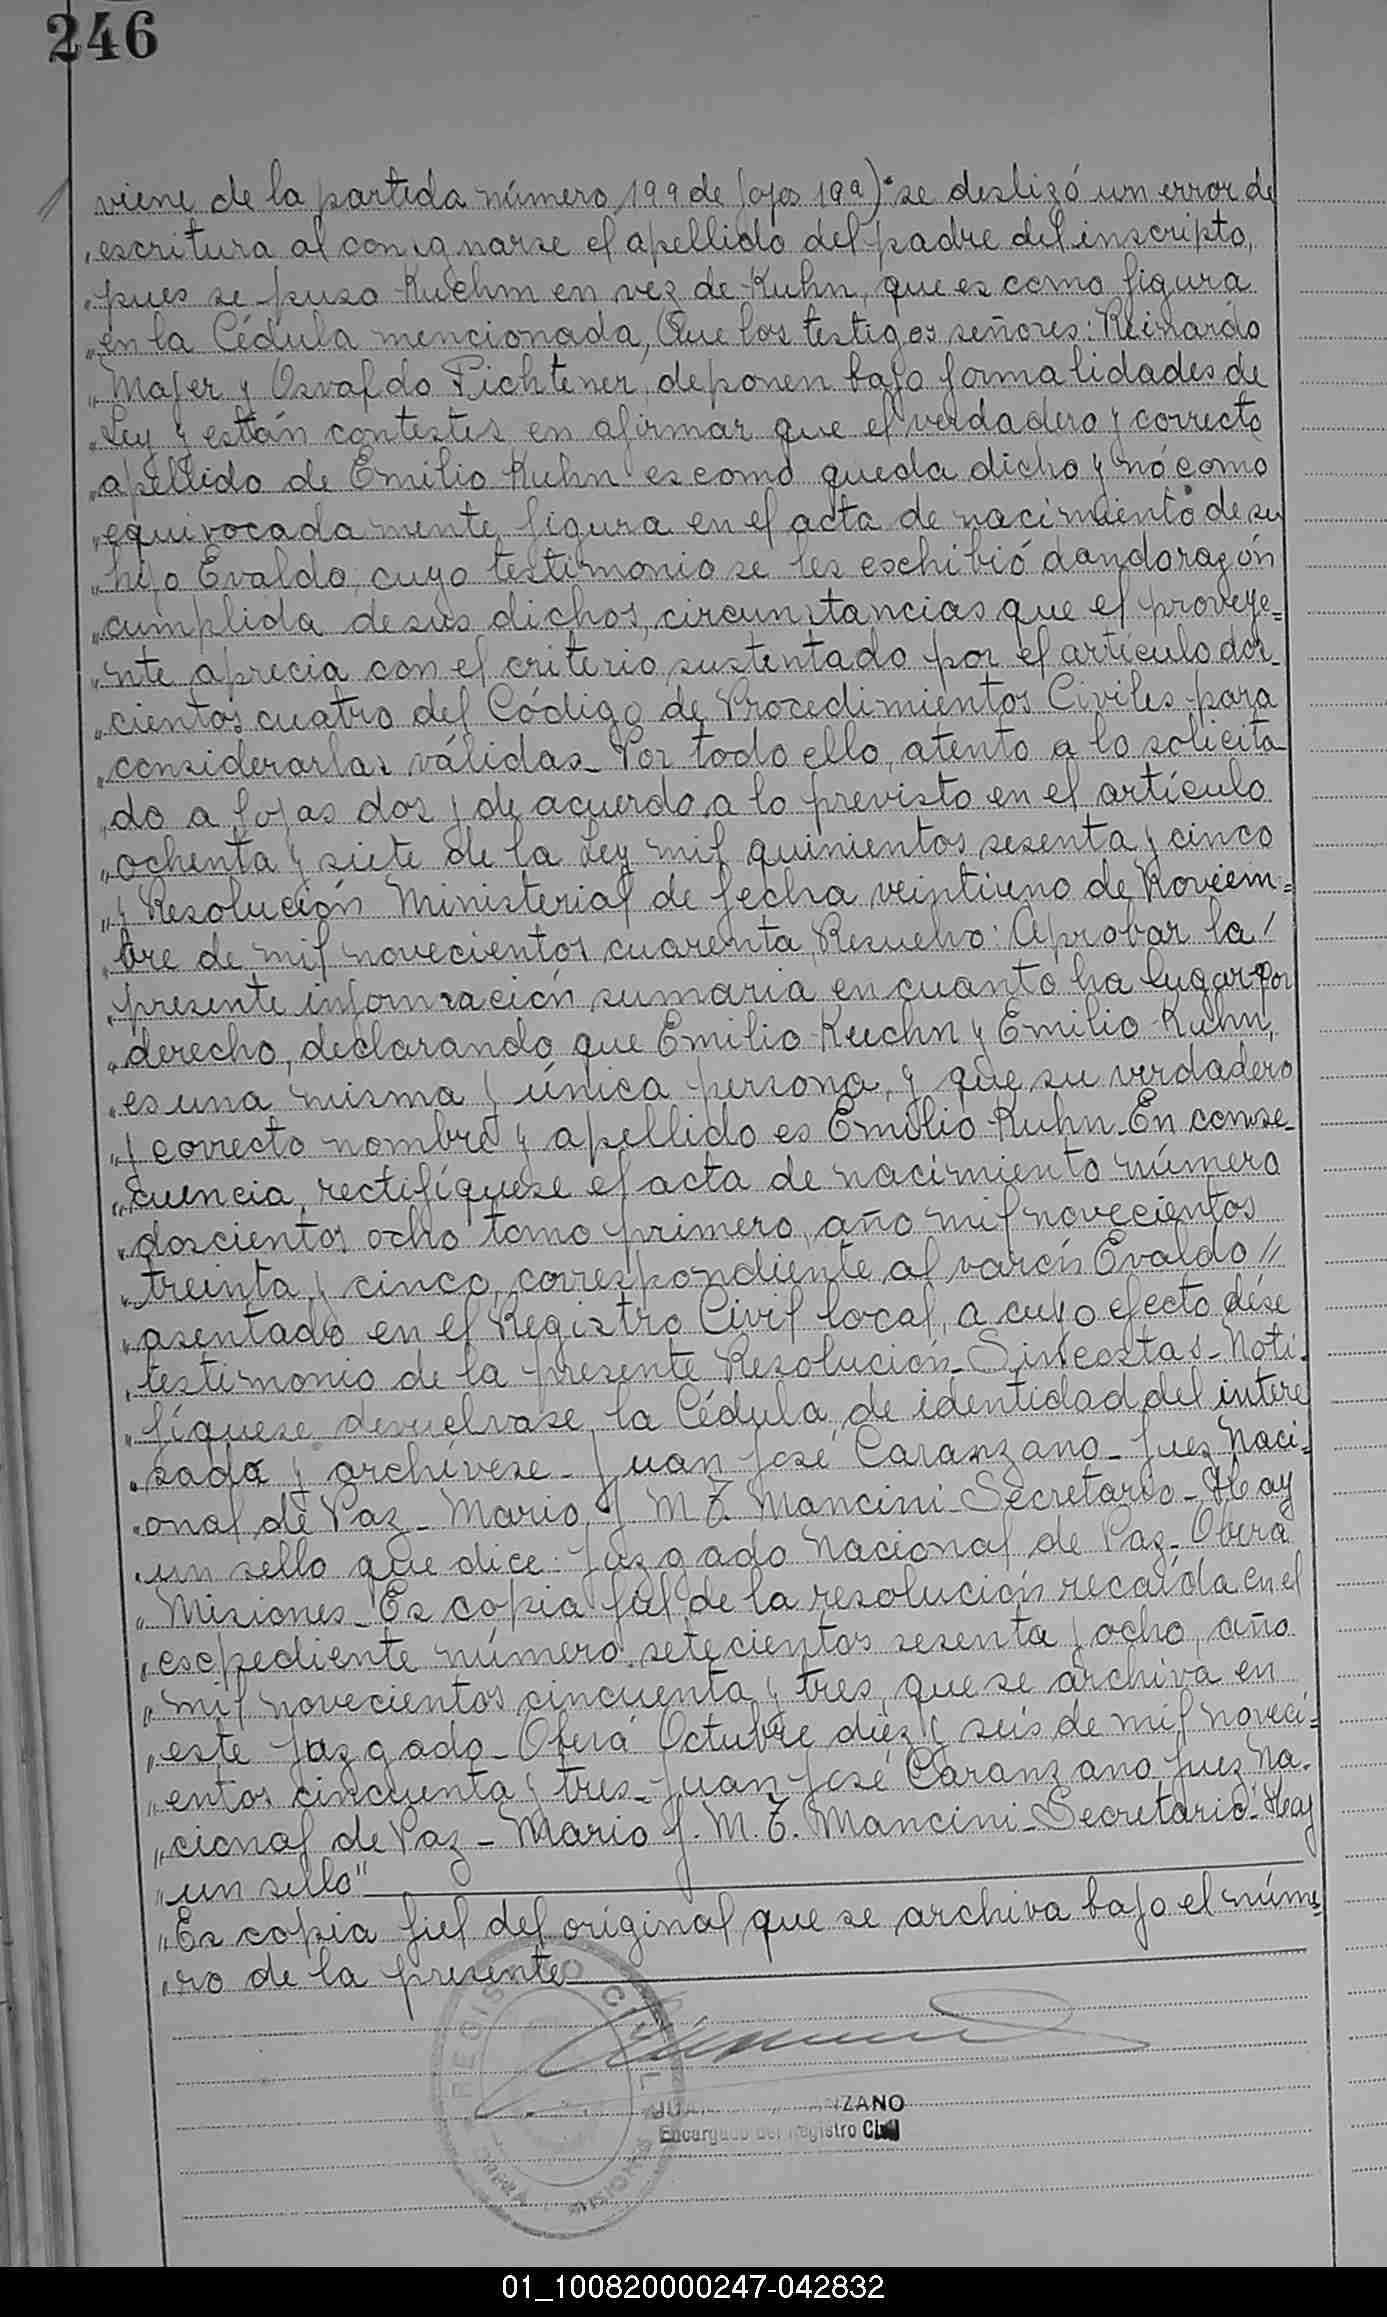 246
viene de la partida número 199 de fojas 199) "se deslizó un error de
„escritura al consignarse el apellido del padre del inscripto,
„pues se puso Kuehm en vez de Kuhn, que es como figura
„en la Cédula mencionada, Que los testigos señores: Reinardo
„Majer y Osvaldo Fichtener, deponen bajo formalidades de
„Ley y están contestes en afirmar que el verdadero y correcto
„apellido de Emilio Kuhn es como queda dicho y nó como
„equivocadamente figura en el acta de nacimiento de su
„hijo Evaldo, cuyo testimonio se les eschibió dando razón
„cumplida de sus dichos, circunstancias que el proveye=
„nte aprecia con el criterio sustentado por el artículo dos-
„cientos cuatro del Código de Procedimientos Civiles para
„considerarlas válidas_ Por todo ello, atento a lo solicita
„do a fojas dos y de acuerdo a lo previsto en el artículo
„ochenta y siete de la Ley mil quinientos sesenta y cinco
„y Resolución Ministerial de fecha veintiuno de Noviem=
„bre de mil novecientos cuarenta, Resuelvo: Aprobar la/
„presente información sumaria en cuanto ha lugar por
„derecho, declarando que Emilio Kuehn y Emilio Kuhn,
„es una misma y única persona, y que su verdadero
„y correcto nombre y apellido es Emilio Kuhn_En conse_
„cuencia, rectifíquese el acta de nacimiento número
„doscientos ocho tomo primero, año mil novecientos
„treinta y cinco, correspondiente al varón Evaldo //
„asentado en el Registro Civil local, a cuyo efecto dése
„testimonio de la presente Resolución_Sin costas_Noti_
„fíquese devuelvase la Cédula de identidad del intere
„sada y archívese_ Juan José Caranzano_Juez Naci=
„onal de Paz_Mario J. M. T. Mancini_Secretario_Hay
„un sello que dice: Juzgado Nacional de Paz_Oberá
„Misiones_Es copia fiel de la resolución recaída en el
„escpediente número setecientos sesenta y ocho, año
„mil novecientos cincuenta y tres, que se archiva en
„este Juzgado_Oberá Octubre diez y seis de mil noveci=
„entos cincuenta y tres_Juan José Caranzano Juez Na.
„cional de Paz_Mario J. M. T. Mancini_Secretario_Hay
„un sello"
„Es copia fiel del original que se archiva bajo el núme=
„ro de la presente
REGISTRO CIVIL
MISIONES
NZANO
Encargado del Registro Civil
01_100820000247-042832